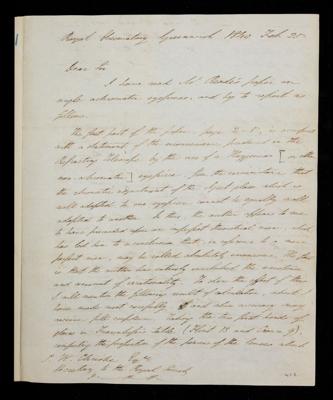 Royal Observatory Greenwich 1840 Feb. 25
Dear Sir
I have read Mr Reade's paper on
single achromatic eyepieces, and beg to report as
follows.
The first part of the paper, page 2-5, is occupied
with a statement of the inconvenience produced in the
Refracting Telescope by the use of a Huygenian [or other
non-achromatic] eyepiece, from the circumstance that
the chromatic adjustment of the object glass which is
well adapted to one eyepiece cannot be equally well
adapted to another. In this, the author appears to me
to have proceeded upon an imperfect theoretical view, which
has led him to a conclusion that, in reference to a more
perfect view, may be called absolutely erroneous. The fact
is that the author has entirely overlooked the
and amount of irrationality. To show the effect of these
I will mention the following result of calculation which I
have made most carefully and whose accuracy may
receive full confidence. Taking the two first kinds of
glass in Fraunhofer's table (Flint 13 and Crown 9),
computing the proportion of the powers of the lenses which
S. H. Christie Esqre
Secretary to the Royal Society